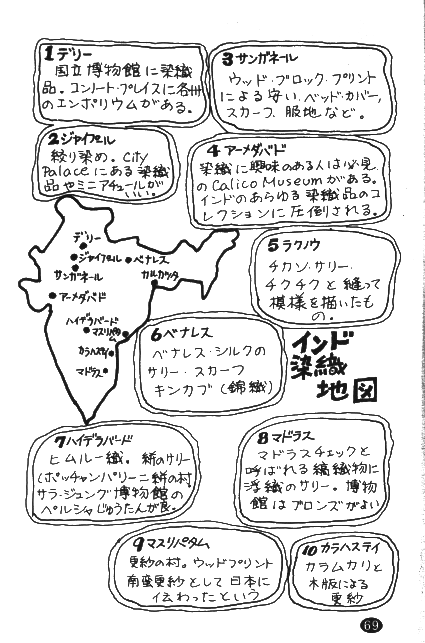 1 デリー
国立博物館に染織
品。コンノート・プレイスに各州
のエンポリウムがある。
3 サンガネール
ウッド・ブロック・プリント
による安い、ベッド・カバー,
スカーフ、服地など。
2 ジャイプール
絞り染め。City
Palaceにある染織
品やミニアチュールが
いい。
4 アーメダバド
染織に興味のある人は必見
のCalico Museumがある。
インドのあらゆる染織品のコ
レクションに圧倒される。
デリー
ジャイプール
サンガネール
ベナレス
カルカッタ
アーメダバド
ハイデラバード
マスリパタム
カラハステイ
マドラス
5 ラクノウ
チカン・サリー・
チクチクと縫って
模様を描いたも
の。
6 ベナレス
ベナレス・シルクの
サリー・スカーフ
キンカブ(錦織)
インド
染織
地図
7 ハイデラバード
ヒムルー織。絣のサリー
(ポッチャンパリー=絣の村)
サラ・ジュング博物館の
ペルシャじゅうたんが良。
8 マドラス
マドラスチェックと
呼ばれる縞織物に
浮織のサリー。博物
館はブロンズがよい
9 マスリパタム
更紗の村。ウッドプリント
南蛮更紗として日本に
伝わったという
10 カラハステイ
カラムカリと
木版による
更紗
69